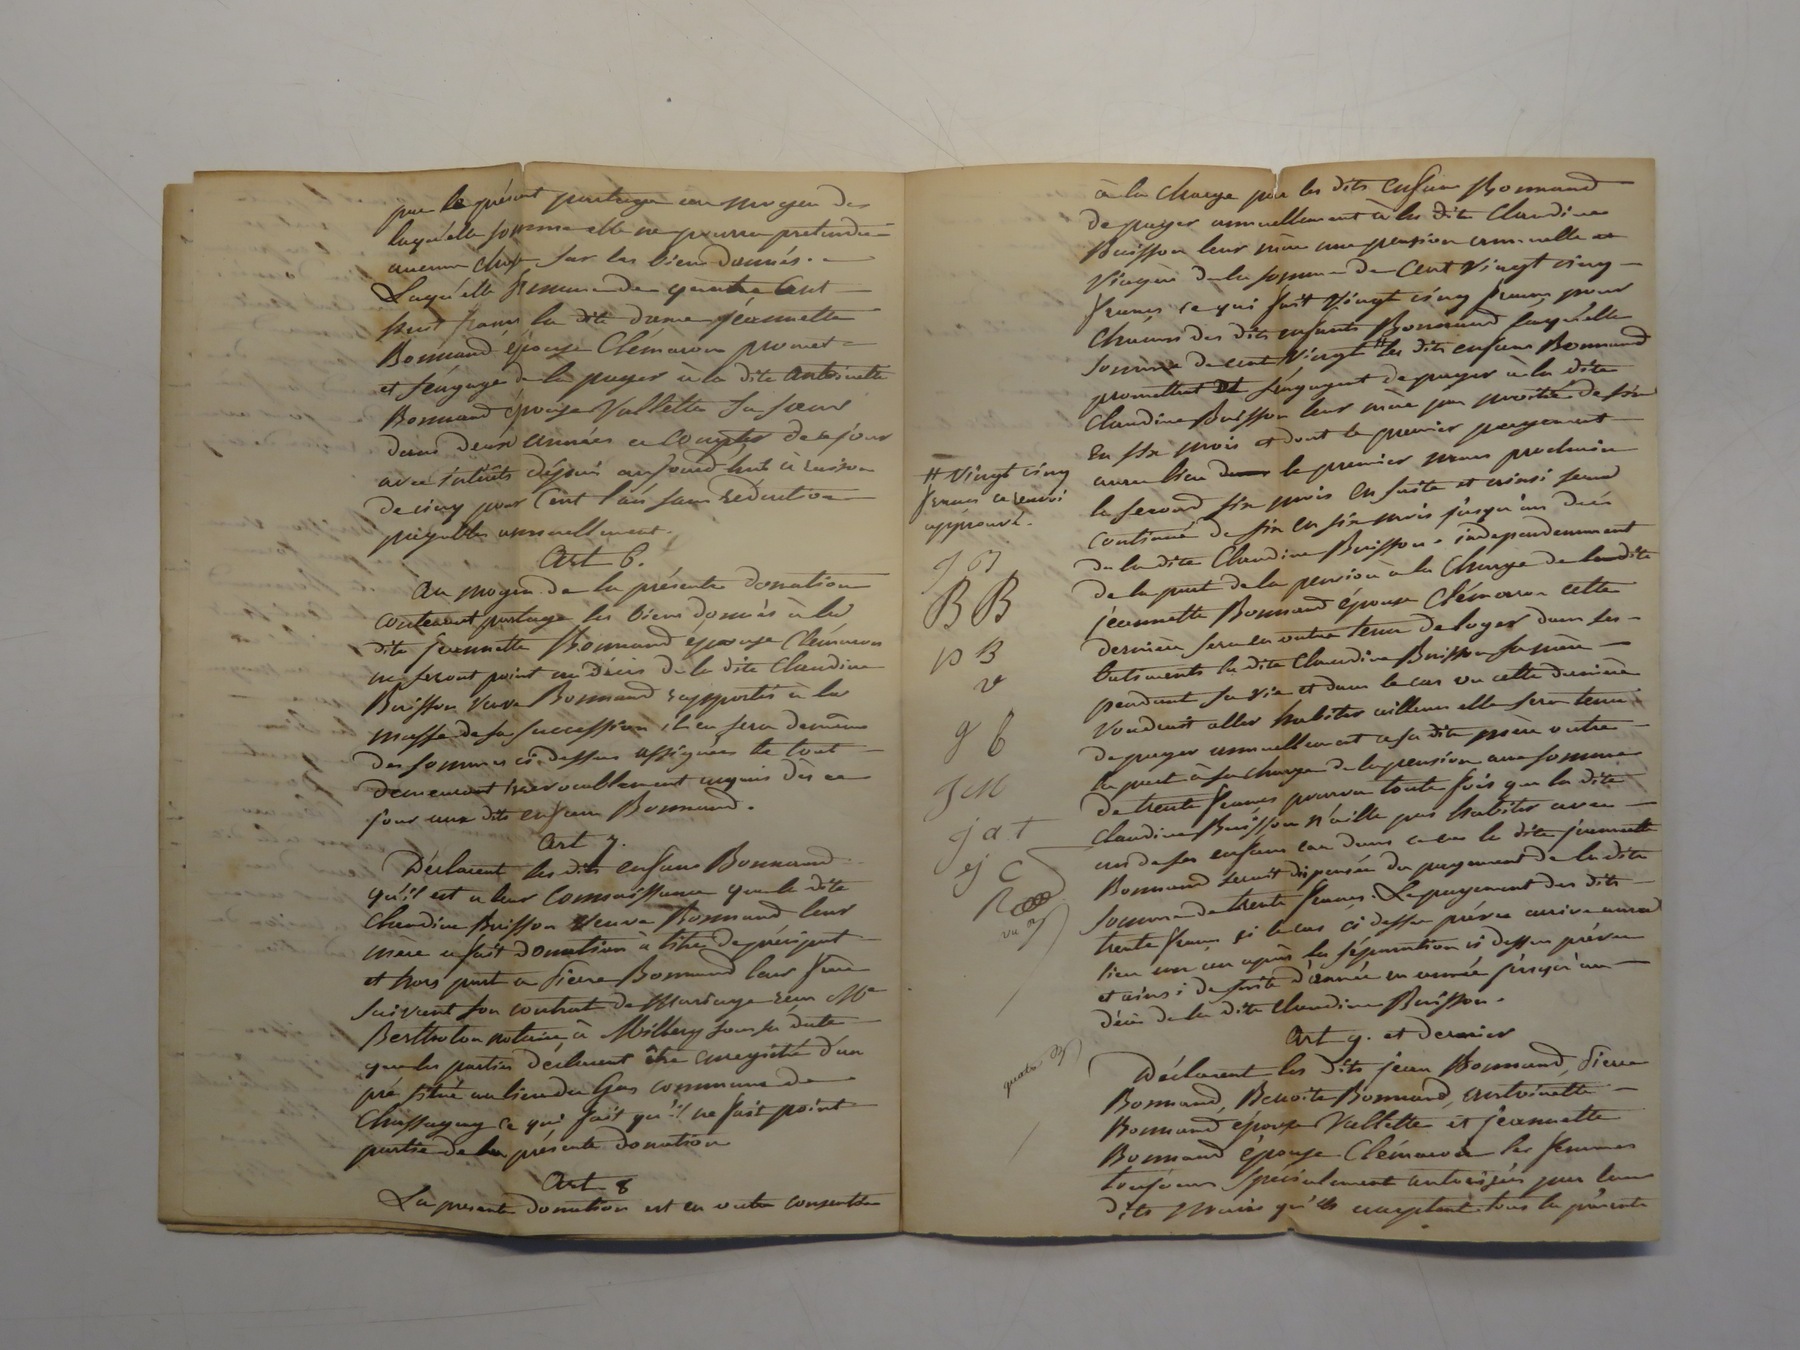 par le présent partage au moyen de
laquelle somme elle ne pourra pretendre
aucune chose sur les biens donnés.
Laquelle somme de quatre Cent
sept francs la dite dame jeannette
Bonnand épouse Clémaron promet
et s'engage de la payer à la dite antoinette
Bonnand épouse Vallette sa sœur
dans deux années a compter de ce jour
avec intérêts depuis aujourd'hui à raison
de cinq pour Cent l'an sans réduction
payables annuellement.
Art 6.
Au moyen de la présente donation
contenant partage les biens donnés à la
dite Jeannette Bonnand épouse Clémaron
ne seront point au décès de la dite Claudine
Buisson veuve Bonnand rapportés à la
masse de sa succession, il en sera de même
des sommes ci dessus assignées le tout
demeurant irrévocablement acquis dès ce
jour aux dits enfans Bonnand.
Art 7.
Déclarent les dits enfans Bonnand
qu'il est a leur Connaissance que la dite
Claudine Buisson Veuve Bonnand leur
mère a fait donation à titre de préciput
et hors part a Pierre Bonnand leur frère
suivant son contrat de Mariage reçu Me
Bertholon notaire à Millery sous sa date
que les parties déclarent être enregistré d'un
pré situé au lieu du Gas commune de
Chassagny ce qui fait qu'il ne fait point
partie de la présente donation
Art 8
La presente donation est en outre consentie
à la charge par les dits enfans Bonnand
de payer annuellement à la dite Claudine
Buisson leur mère une pension annuelle et
Viagère de la somme de Cent Vingt cinq
francs ce qui fait Vingt cinq francs pour
Chacun des dits enfants Bonnand laquelle
somme de cent Vingt # les dits enfans Bonnand
promettent et s'engagent de payer à la dite
Claudine Buisson leur mère par moitié de six
en six mois et dont le premier payement
aura lieu le premier mars prochain
le second six mois en suite et ainsi sera
continué de six en six mois jusqu'au décès
de la dite Claudine Buisson. independamment
de la part de la pension à la Charge de la dite
jeannette Bonnand épouse Clémaron cette
dernière sera en outre tenue de loger dans ses
batiments la dite Claudine Buisson sa mère
pendant sa vie et dans le cas ou cette dernière
Voudrait aller habiter ailleurs elle sera tenue
de payer annuellement a sa dite mère outre
la part à sa charge de la pension une somme
de trente francs pourvu toute fois que la dite
Claudine Buisson n'aille pas habiter avec
un de ses enfans car dans ce cas la dite jeannette
Bonnand serait dispensée du payement de la dite
somme de trente francs. Le payement des dits
trente francs si le cas ci dessus prévu arrive aura
lieu un an après la séparation ci dessus prévue
et ainsi de suite d'année en année jusqu'au
décès de la dite Claudine Buisson.
Art 9. et dernier
Déclarent les dits jean Bonnand, Pierre
Bonnand, Benoite Bonnand, antoinette
Bonnand épouse Vallette et jeannette
Bonnand épouse Clémaron les femmes
toujours spécialement autorisées par leurs
dits maris qu'ils acceptent tous la présente
# Vingt cinq
francs ce renvoi
approuvé.
B B
p B
v
g b
J M
j a t
ej C